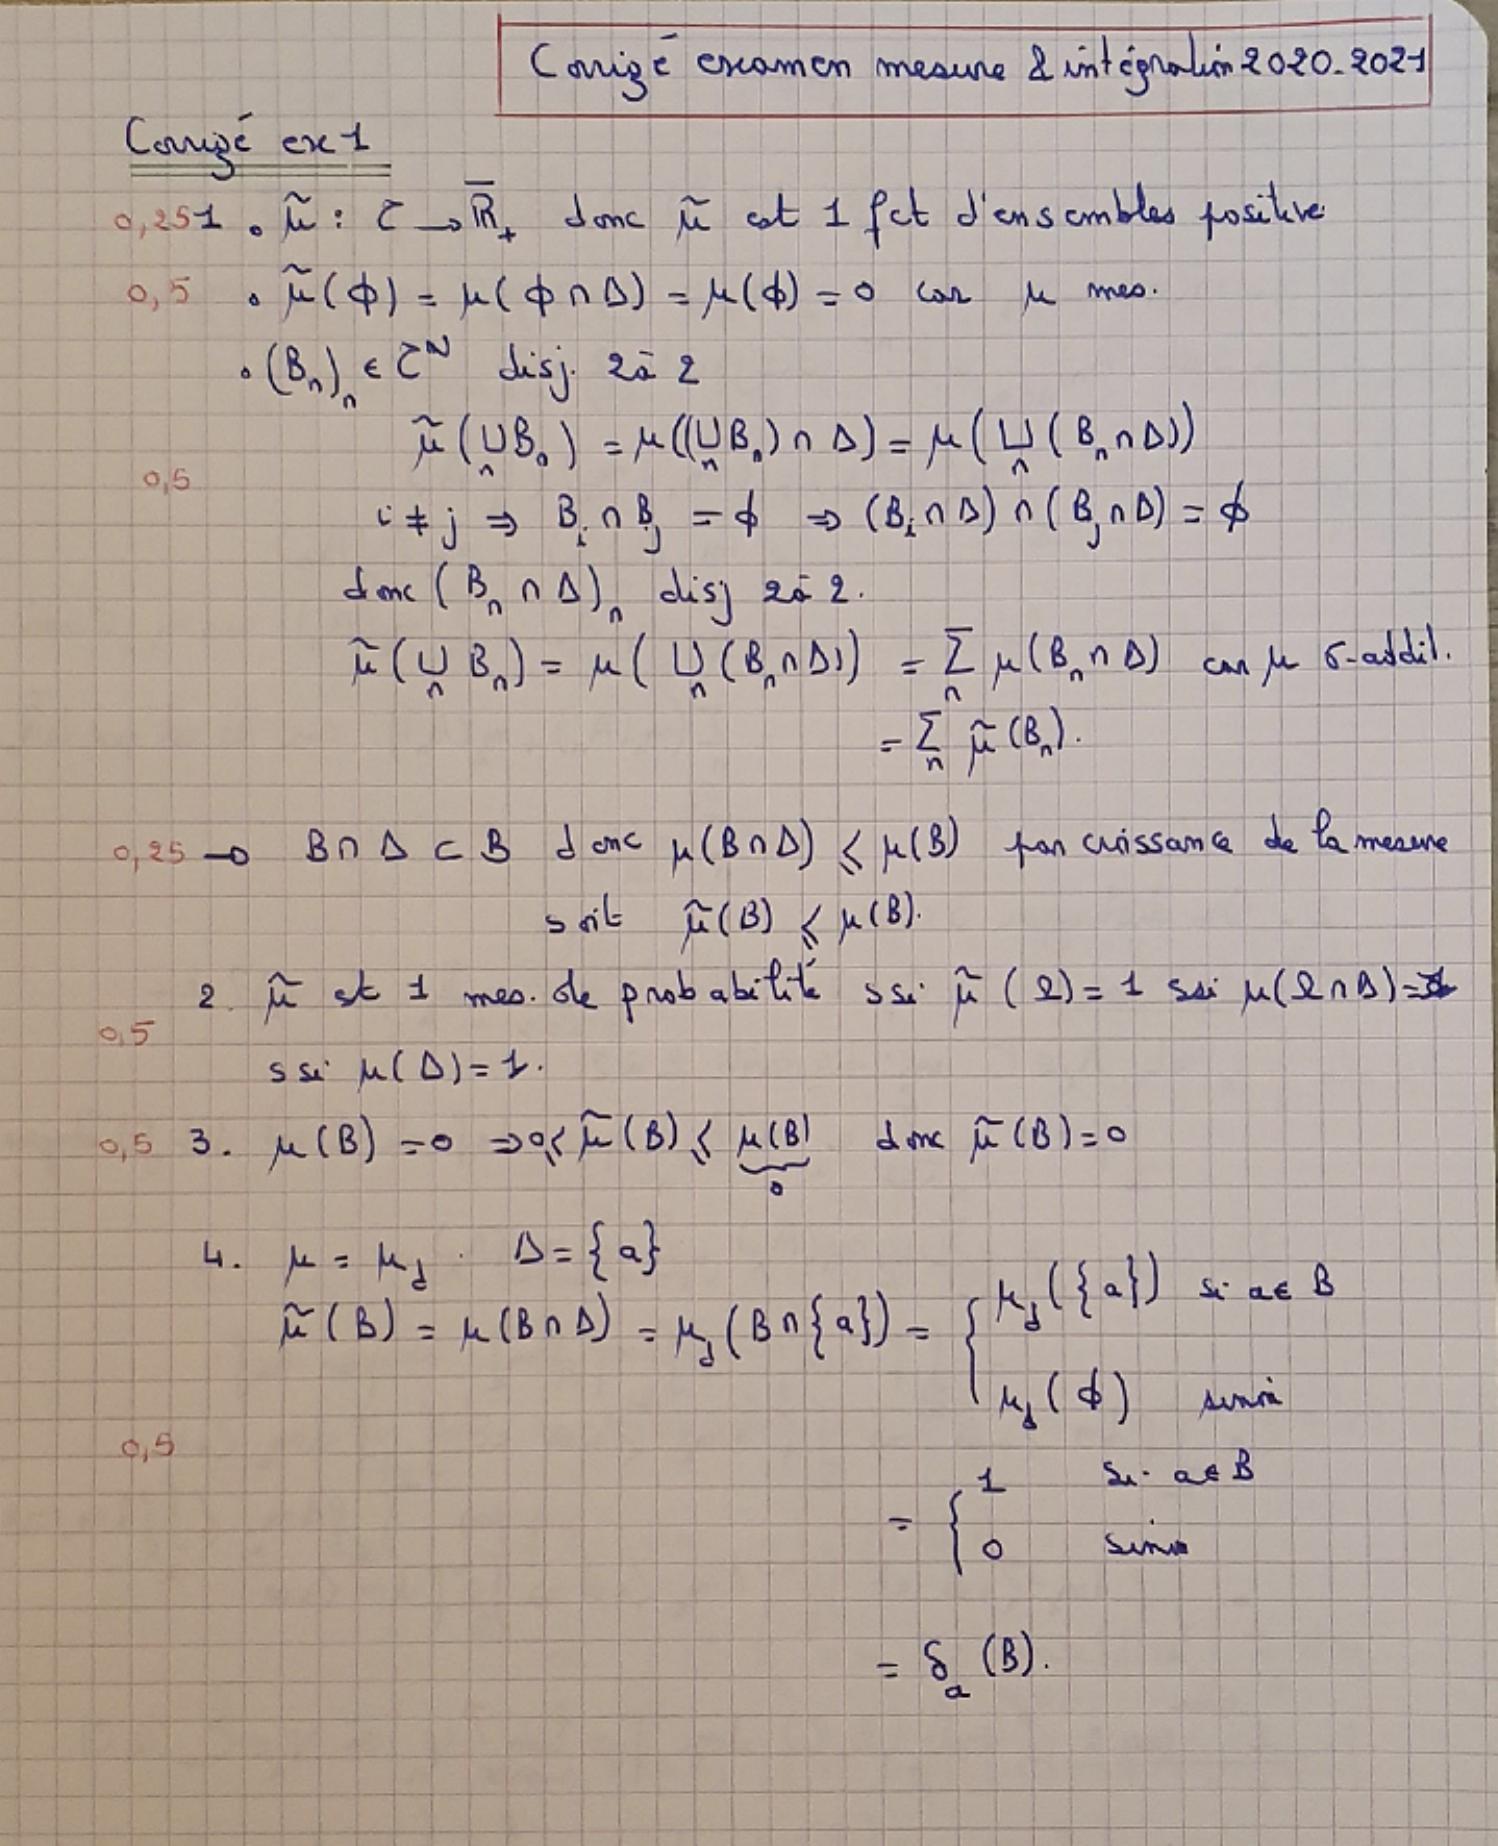 Corrigé examen mesure & intégration 2020-2021
Corrigé ex 1
0,25 1 • μ̃ : τ → R̄₊ donc μ̃ est 1 fct d'ensembles positive
0,5 • μ̃(ϕ) = μ(ϕ ∩ Δ) = μ(ϕ) = 0 car μ mes.
• (Bₙ)ₙ ∈ τᴺ disj. 2 à 2
μ̃(∪ₙ Bₙ) = μ((∪ₙ Bₙ) ∩ Δ) = μ(⊔ₙ (Bₙ ∩ Δ))
0,5
i ≠ j ⇒ Bᵢ ∩ Bⱼ = ϕ ⇒ (Bᵢ ∩ Δ) ∩ (Bⱼ ∩ Δ) = ϕ
donc (Bₙ ∩ Δ)ₙ disj 2 à 2.
μ̃(∪ₙ Bₙ) = μ(∪ₙ (Bₙ ∩ Δ)) = Σₙ μ(Bₙ ∩ Δ) car μ σ-addit.
= Σₙ μ̃(Bₙ).
0,25 → B ∩ Δ ⊂ B donc μ(B ∩ Δ) ⩽ μ(B) par croissance de la mesure
soit μ̃(B) ⩽ μ(B).
2. μ̃ est 1 mes. de probabilité ssi μ̃(Ω) = 1 ssi μ(Ω ∩ Δ) = 1
0,5
ssi μ(Δ) = 1.
0,5 3. μ(B) = 0 ⇒ 0 ⩽ μ̃(B) ⩽ μ(B) donc μ̃(B) = 0
0
4. μ = μ_d . Δ = {a}
μ̃(B) = μ(B ∩ Δ) = μ_d(B ∩ {a}) = { μ_d({a}) si a ∈ B
μ_d(ϕ) sinon
0,5
= { 1 si a ∈ B
0 sinon
= δₐ(B).